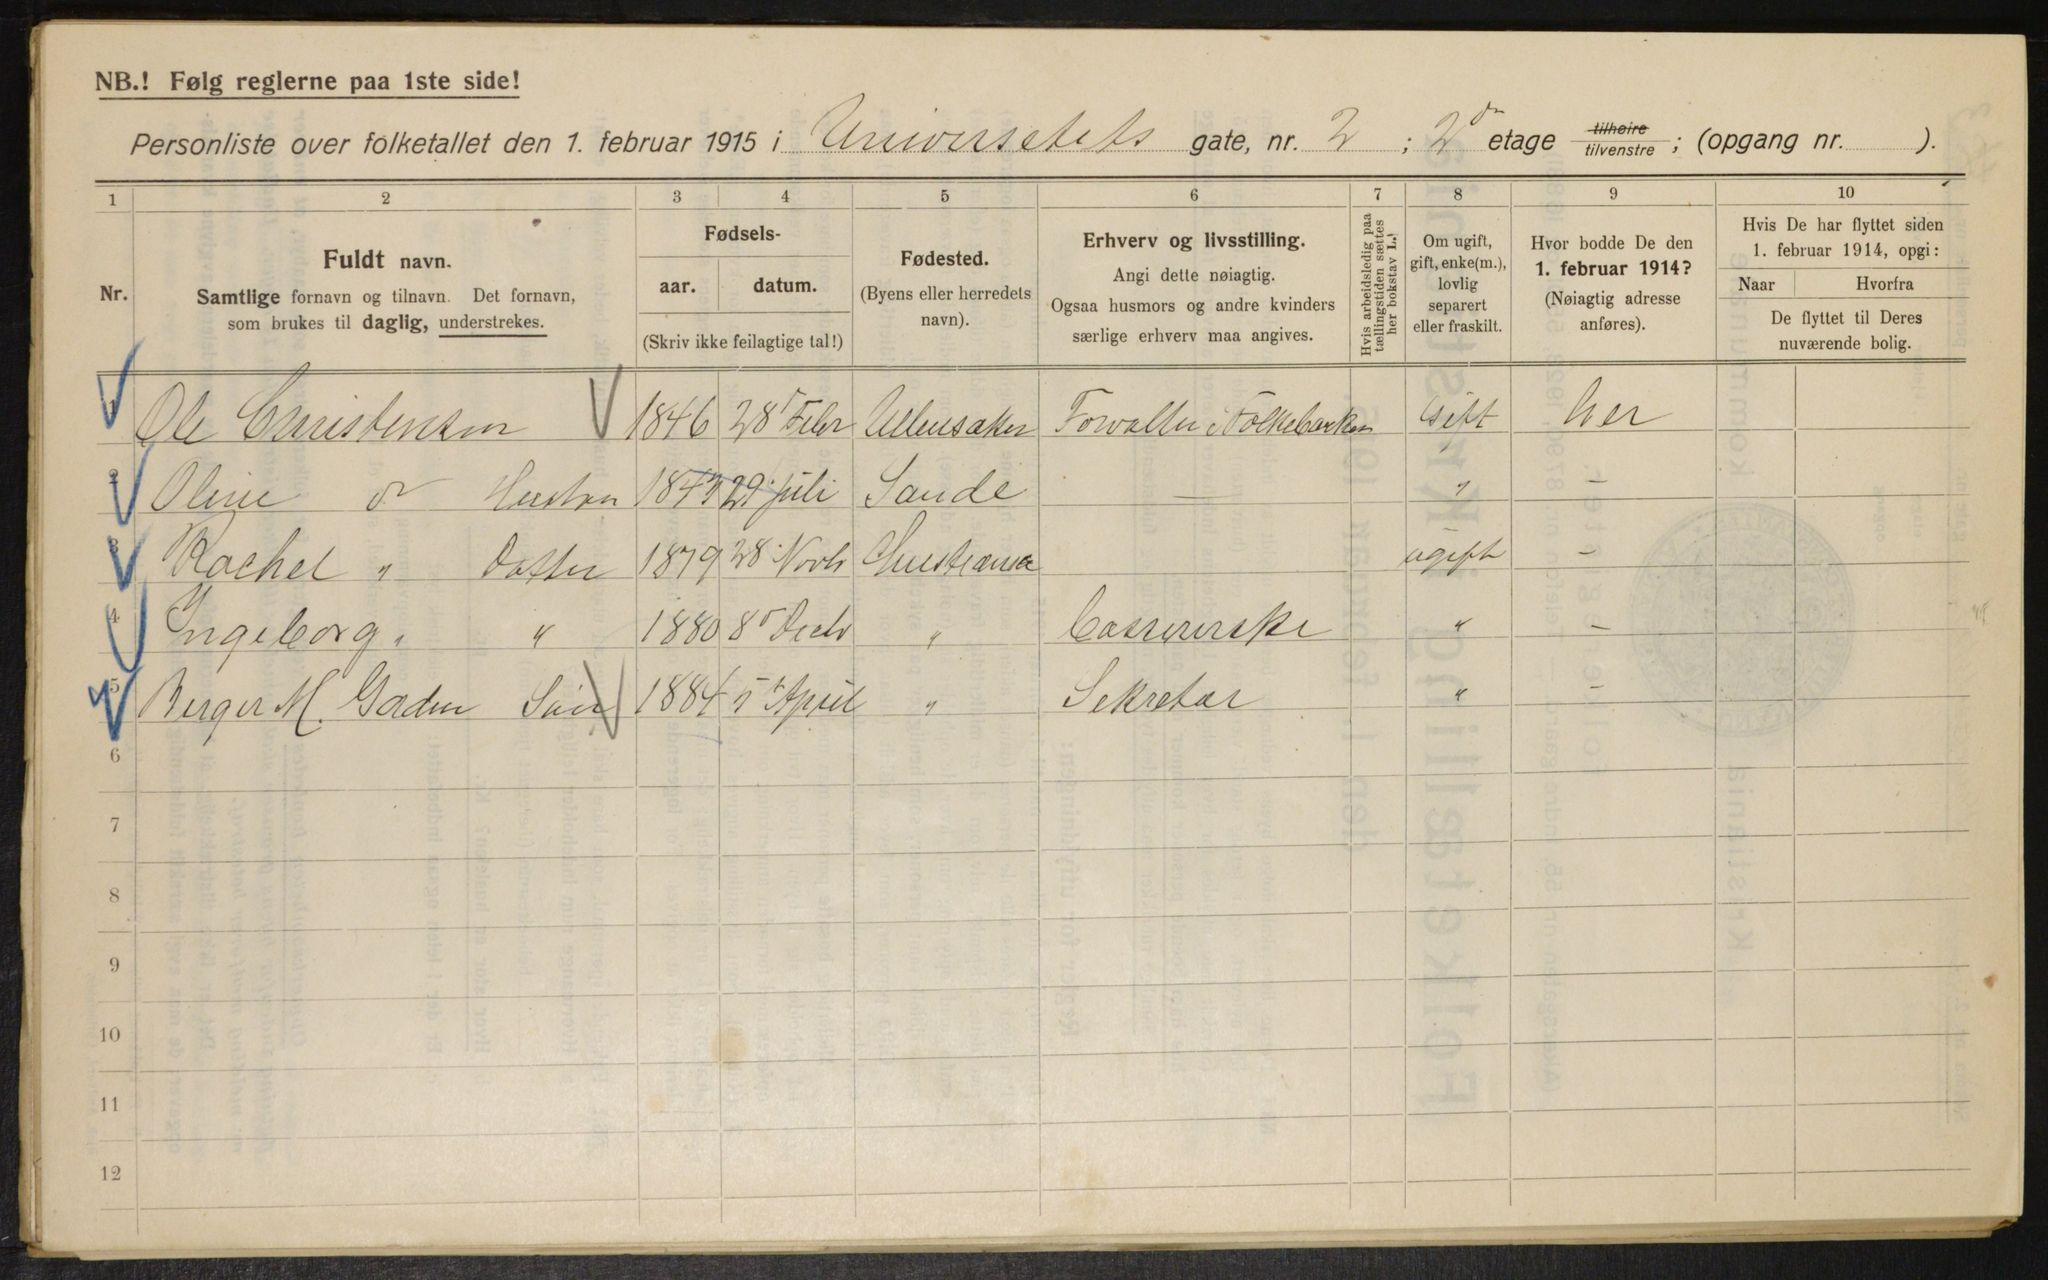 NB.! Følg reglerne paa 1ste side!
Personliste over folketallet den 1. februar 1915 i Universetets gate, nr. 2 ; 2den etage tilhøire tilvenstre ; (opgang nr. ).
1 2 3 4 5 6 7 8 9 10
Nr.
Fuldt navn.
Samtlige fornavn og tilnavn. Det fornavn,
som brukes til daglig, understrekes.
Fødsels-
aar. datum.
(Skriv ikke feilagtige tal!)
Fødested.
(Byens eller herredets
navn).
Erhverv og livsstilling.
Angi dette nøiagtig.
Ogsaa husmors og andre kvinders
særlige erhverv maa angives.
Hvis arbeidsledig paa
tællingstiden sættes
her bokstav L.!
Om ugift,
gift, enke(m.),
lovlig
separert
eller fraskilt.
Hvor bodde De den
1. februar 1914?
(Nøiagtig adresse
anføres).
Hvis De har flyttet siden
1. februar 1914, opgi:
Naar Hvorfra
De flyttet til Deres
nuværende bolig.
1 Ole Christensen 1846 28 Febr Ullensaker Forvalter i Folkebanken Gift her
2 Oline do Hustru 29 juli Sande — " -
3 Rachel " Datter 1879 28 Novb Christiania ugift -
4 Ingeborg " " 1880 8 Decb " Casererske " -
5 Berger M. Gaden Søn 1884 5t April " Sekretær " -
6
7
8
9
10
11
12